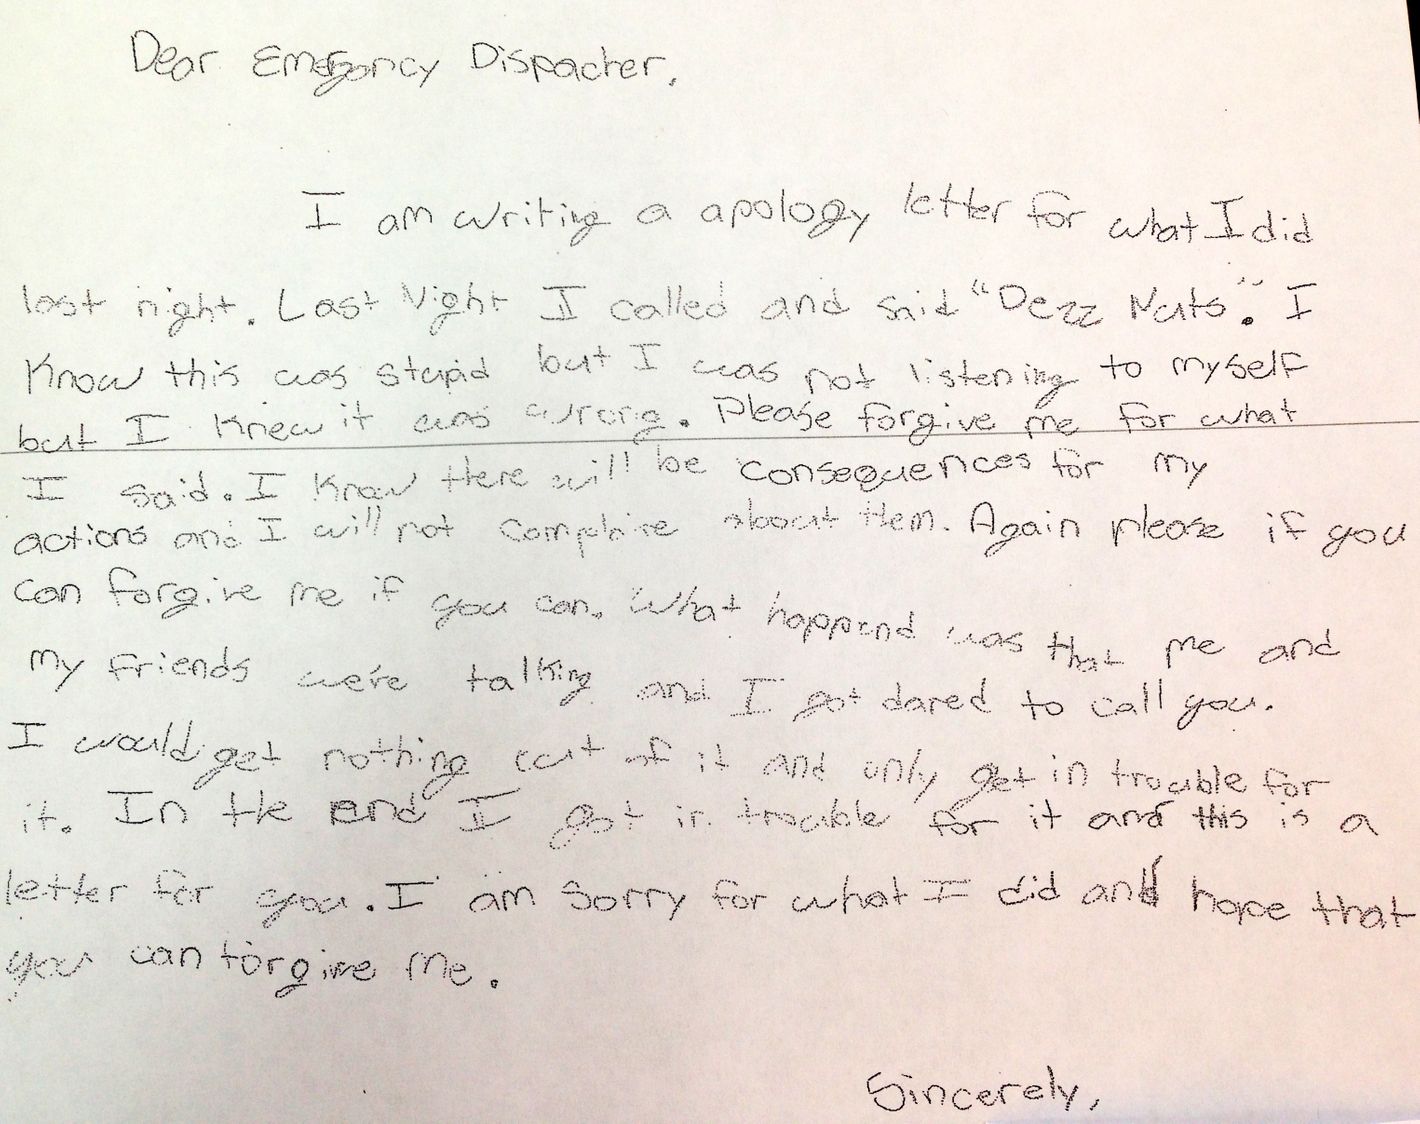 Dear Emergency Dispacher,
I am writing a apology letter for what I did
last night. Last Night I called and said "Dezz Nuts". I
Know this was stupid but I was not listening to myself
but I Knew it was wrong. Please forgive me for what
I said. I Know there will be consequences for my
actions and I will not complaire about them. Again please if you
can forgive me if you can. What happend was that me and
my friends we're talking and I got dared to call you.
I would get nothing out of it and only get in trouble for
it. In the end I got in trouble for it and this is a
letter for you. I am sorry for what I did and hope that
you can forgive me.
Sincerely,